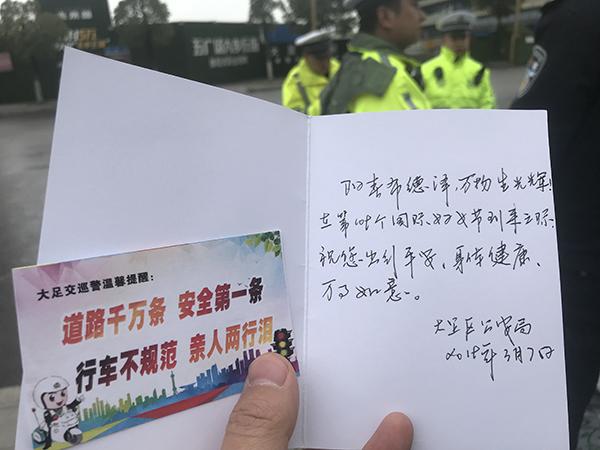 大足交巡警温馨提醒：
道路千万条 安全第一条
行车不规范 亲人两行泪
阳春布德泽，万物生光辉！
在第109个国际妇女节到来之际，
祝您出入平安，身体健康、
万事如意。
大足区公安局
2019年3月7日